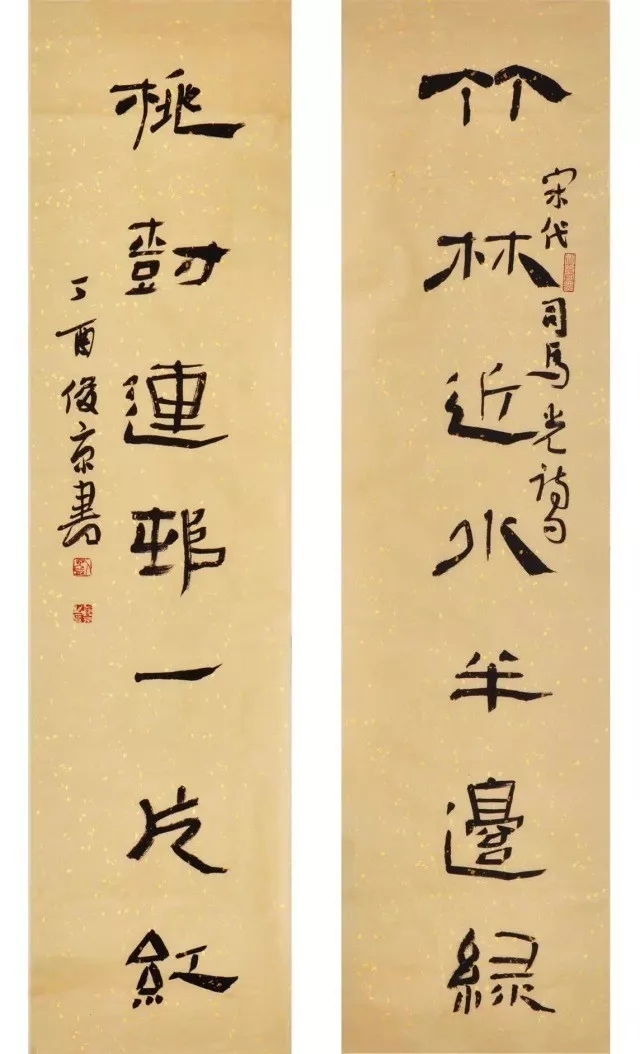 竹林近水半邊綠
宋代司馬光詩句
桃樹連邨一片紅
丁酉俊京書